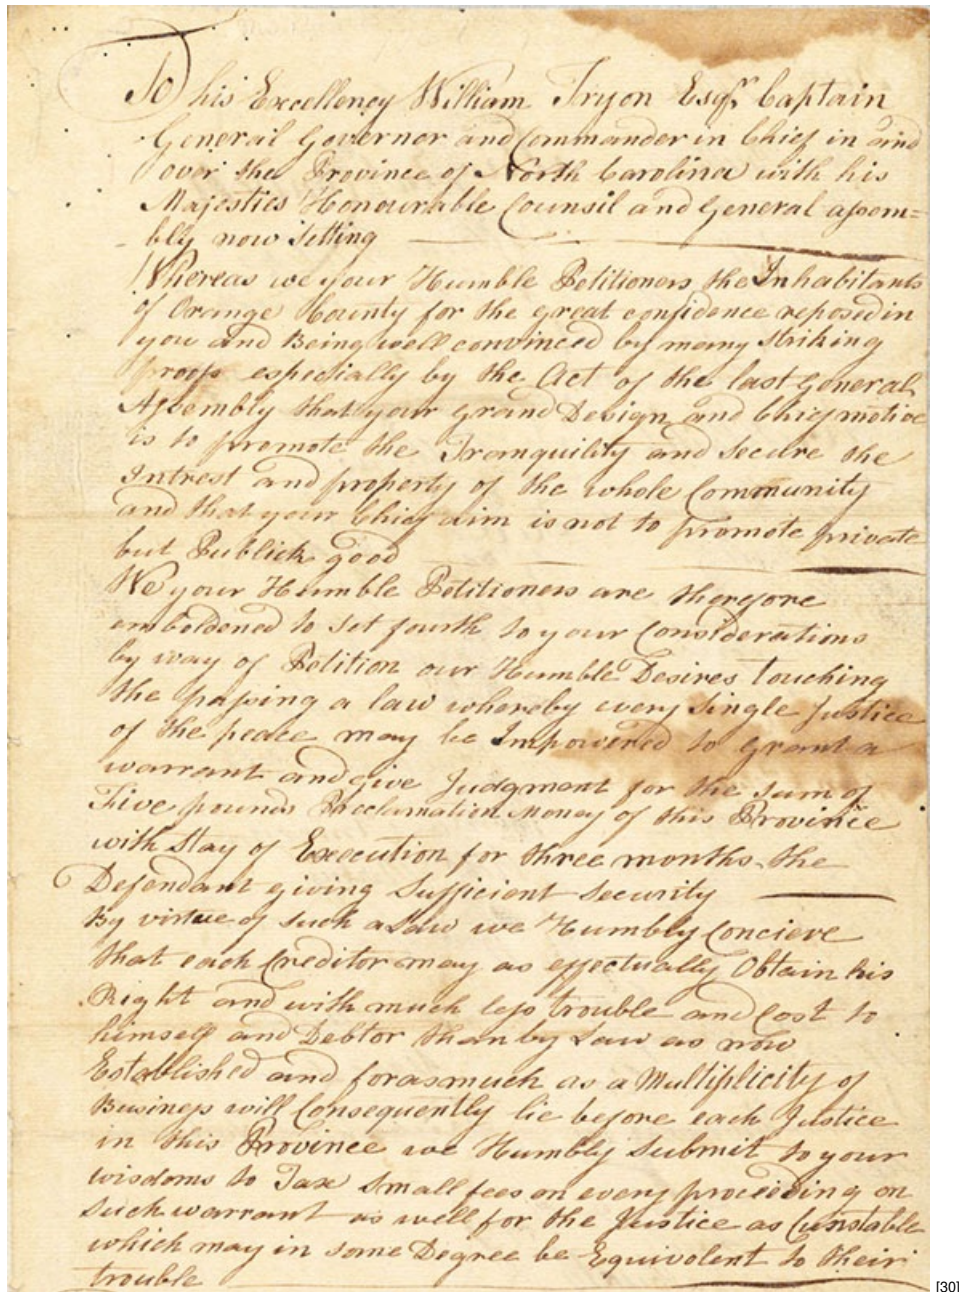 To his Excellency William Tryon Esqr. Captain
General Governor and Commander in Chief in and
over the Province of North Carolina with his
Majesties Honourable Counsil and General assem=
bly now Setting
Whereas we your Humble Petitioners the Inhabitants
of Orange County for the great confidence reposed in
you and Being well convinced by many Striking
proofs especially by the Act of the last General
Assembly that your grand Design and Chief motive
is to promote the Tranquility and Secure the
Intrest and property of the whole Community
and that your Chief aim is not to promote private
but Publick good
We your Humble Petitioners are therefore
emboldened to Set fourth to your Considerations
by way of Petition our Humble Desires touching
the passing a law whereby every Single Justice
of the peace may be Impowered to grant a
warrant and give Judgment for the Sum of
Five pounds Proclamation Money of this Province
with Stay of Execution for three months the
Defendant giving Sufficient Security
By virtue of Such a Law we Humbly Concieve
that each Creditor may as effectually Obtain his
Right and with much less trouble and Cost to
himself and Debtor than by Law as now
Established and forasmuch as a Multiplicity of
Business will Consequently lie before each Justice
in this Province we Humbly Submit to your
wisdoms to Tax Small fees on every proceeding on
Such warrant as well for the Justice as Cunstable
which may in Some Degree be Equivolent to their
trouble
[30]